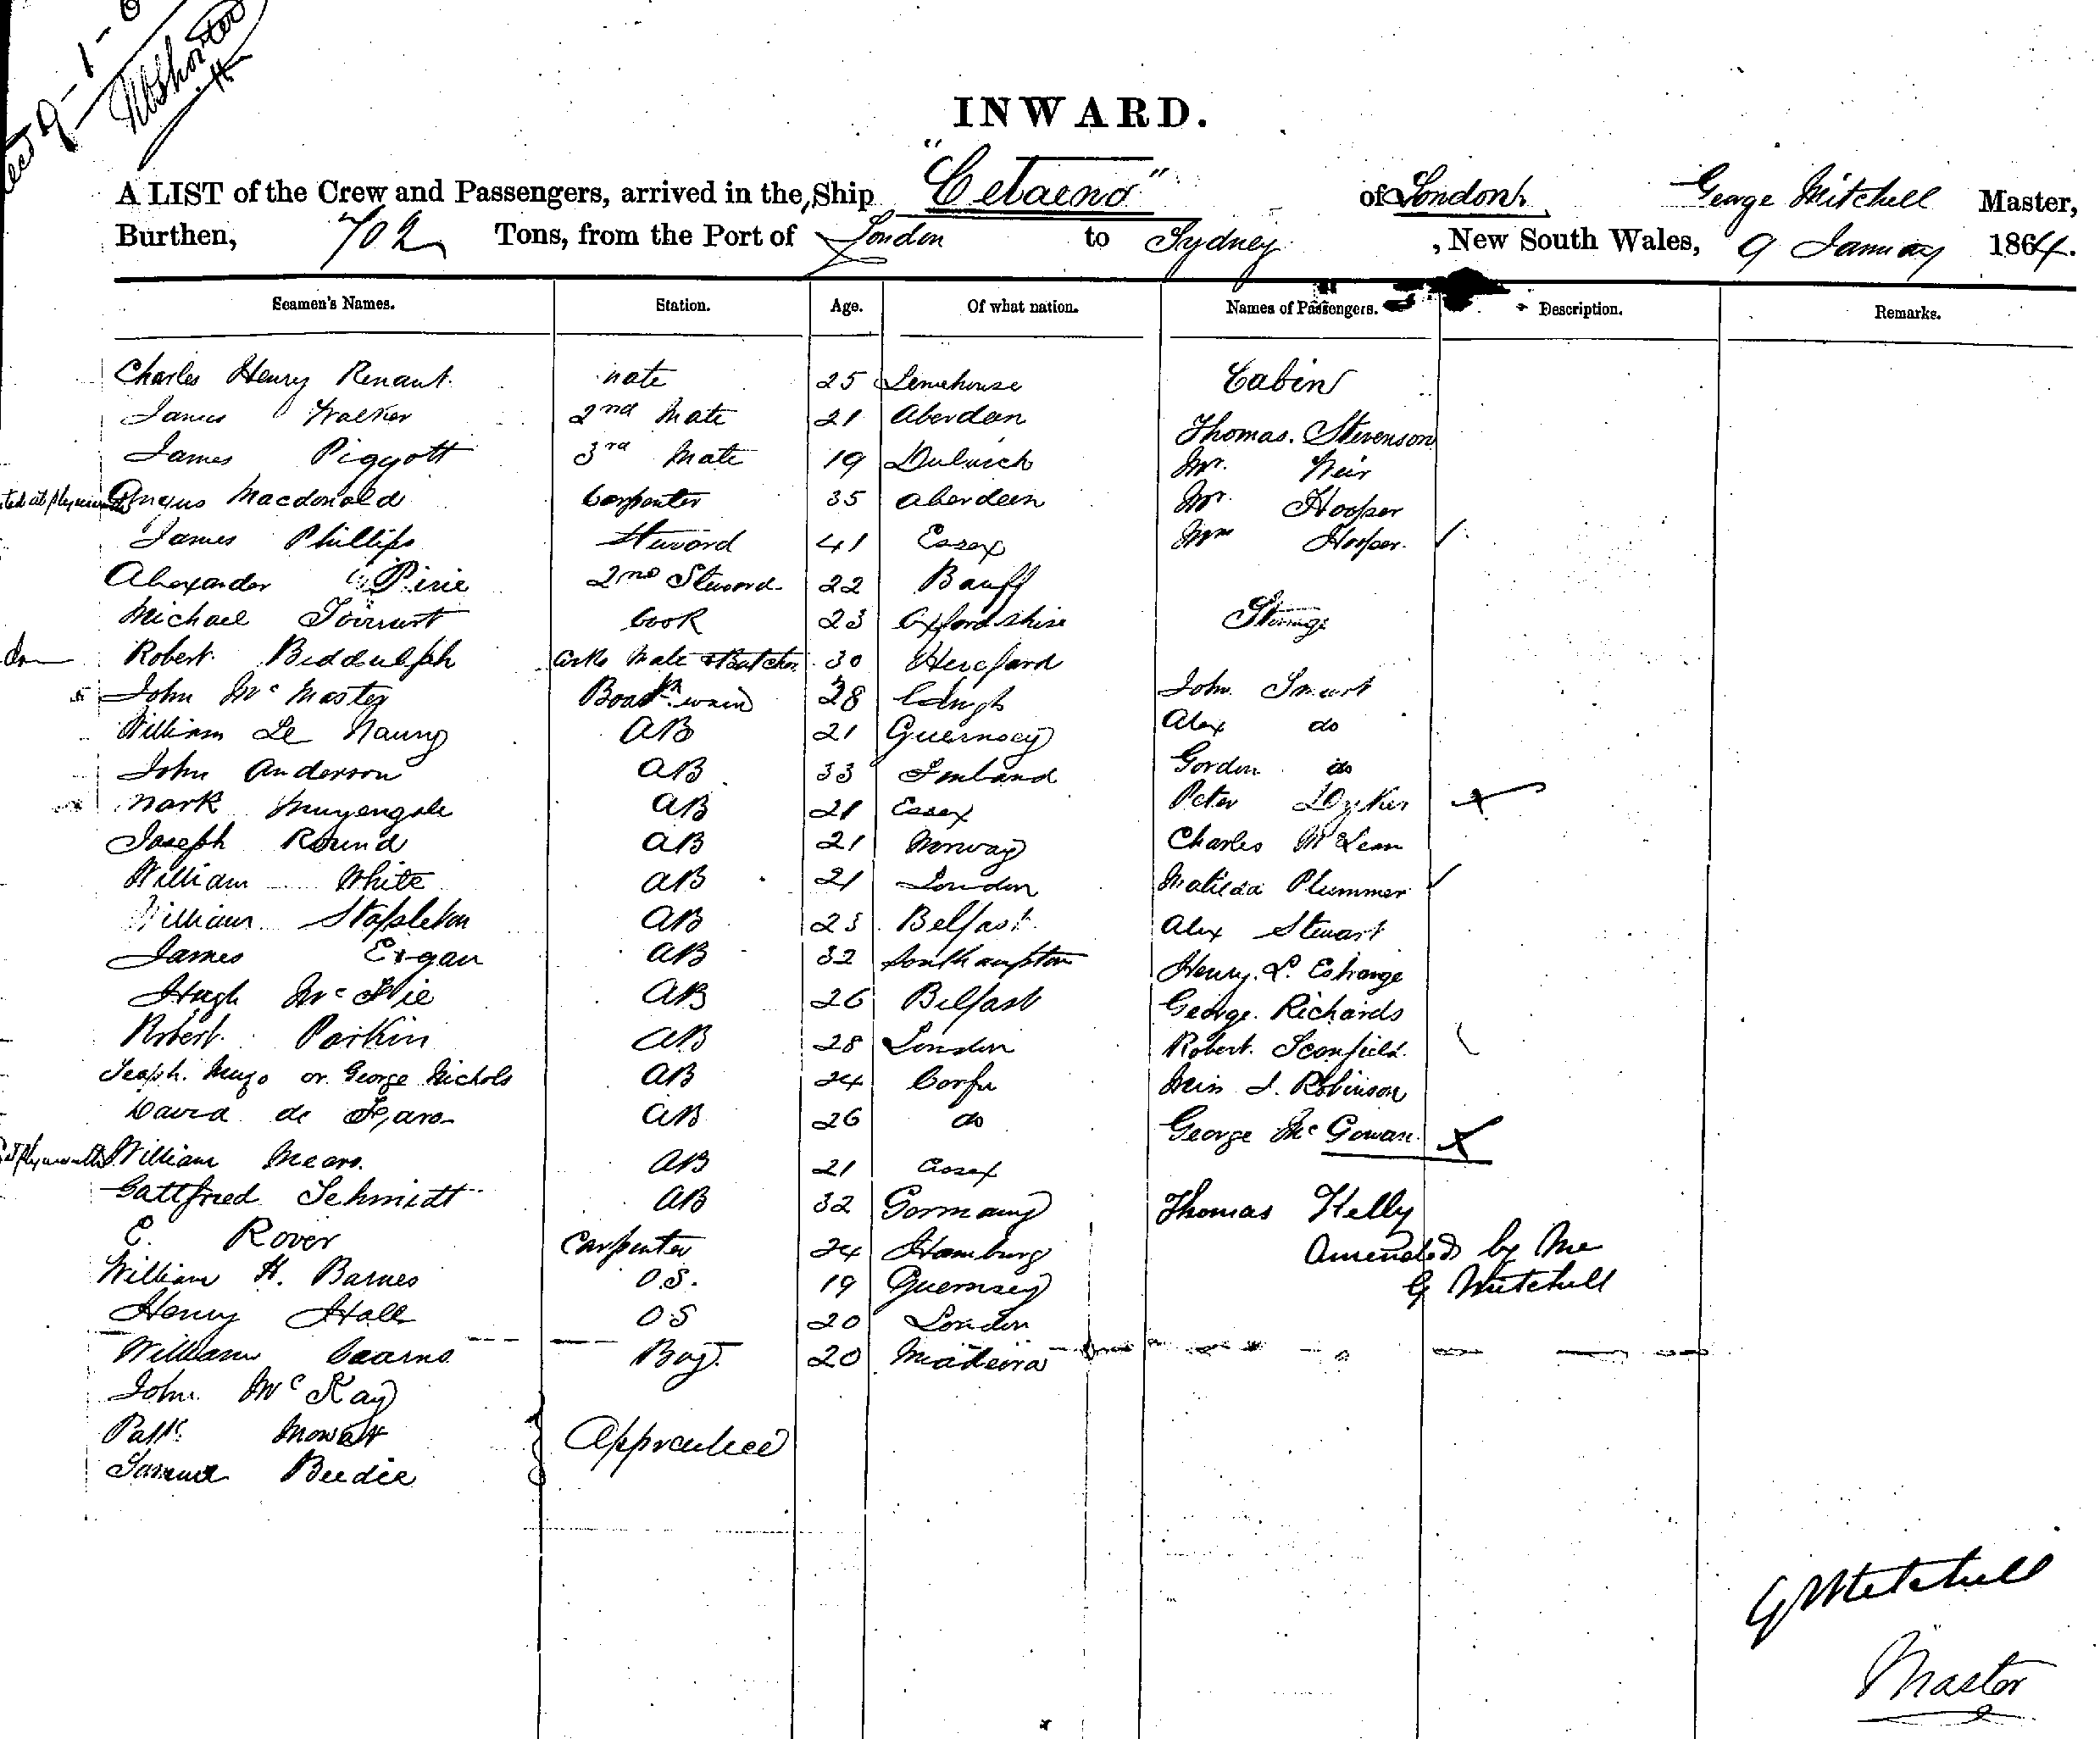 INWARD.
A LIST of the Crew and Passengers, arrived in the Ship "Celaeno" of London, George Mitchell Master,
Burthen, 702 Tons, from the Port of London to Sydney, New South Wales, 9 January 1864.
Seamen's Names. Station. Age. Of what nation. Names of Passengers. Description. Remarks.
Charles Henry Renaut mate 25 Limehouse Cabin
James Walker 2nd Mate 21 Aberdeen
Thomas. Stevenson
James Piggott 3rd Mate 19 Dulwich Mr. Weir
Angus Macdonald Carpenter 35 Aberdeen Mr. Hooper
James Phillips Steward 41 Essex Mrs Hooper.
Alexander Pirie 2nd Steward 22 Banff
Michael Cook 23 Oxfordshire Steerage
Robert Biddulph Mate & Butcher 30 Hereford
John McMaster 28 John Smart
William Le AB 21 Guernsey Alex do
John Anderson AB 33 Gordon do
Mark AB 21 Essex Peter
Joseph Round AB 21 Norway Charles McLean
William White AB 21 London Matilda Plummer
William Stapleton AB 23 Belfast Alex Stewart
James AB 32 Southampton Henry. L'Estrange
Hugh McFie AB 26 Belfast George. Richards
Robert. Parkin AB 28 London Robert.
Joseph. or George Nichols AB 24 Corfu Miss J. Robinson
David de AB 26 do George McGowan
William Mears AB 21 Essex
Gattfried Schmidt AB 32 Germany Thomas Kelly
E. Rover Carpenter 24 Hamburg Amended by Me
William H. Barnes O.S. 19 Guernsey G Mitchell
Henry Hall OS 20 London
William Boy. 20 Madeira
John McKay
Patk. Mowatt Apprentices
Samuel Beedie
G Mitchell
Master